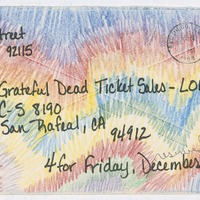 treet
92115
Grateful Dead Ticket Sales - LO
C-S 8190
San Rafeal, CA
94912
4 for Friday, December